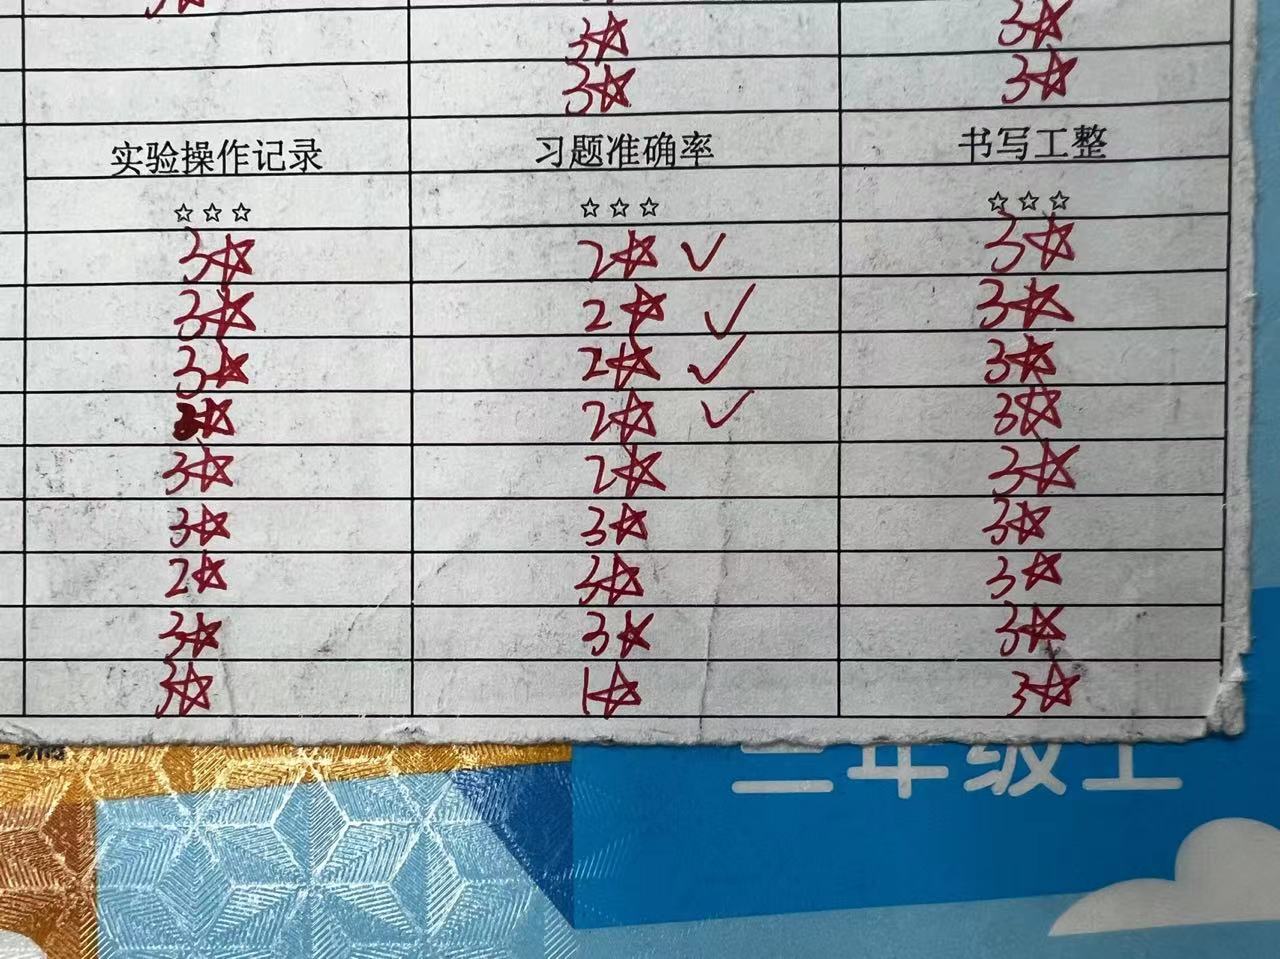 3☆ 3☆
3☆ 3☆
实验操作记录 习题准确率 书写工整
☆☆☆ ☆☆☆ ☆☆☆
3☆ 2☆ ✓ 3☆
3☆ 2☆ ✓ 3☆
3☆ 2☆ ✓ 3☆
☆ 2☆ ✓ 3☆
3☆ 2☆ 3☆
3☆ 3☆ 3☆
2☆ 3☆ 3☆
3☆ 3☆ 3☆
3☆ 1☆ 3☆
年级上